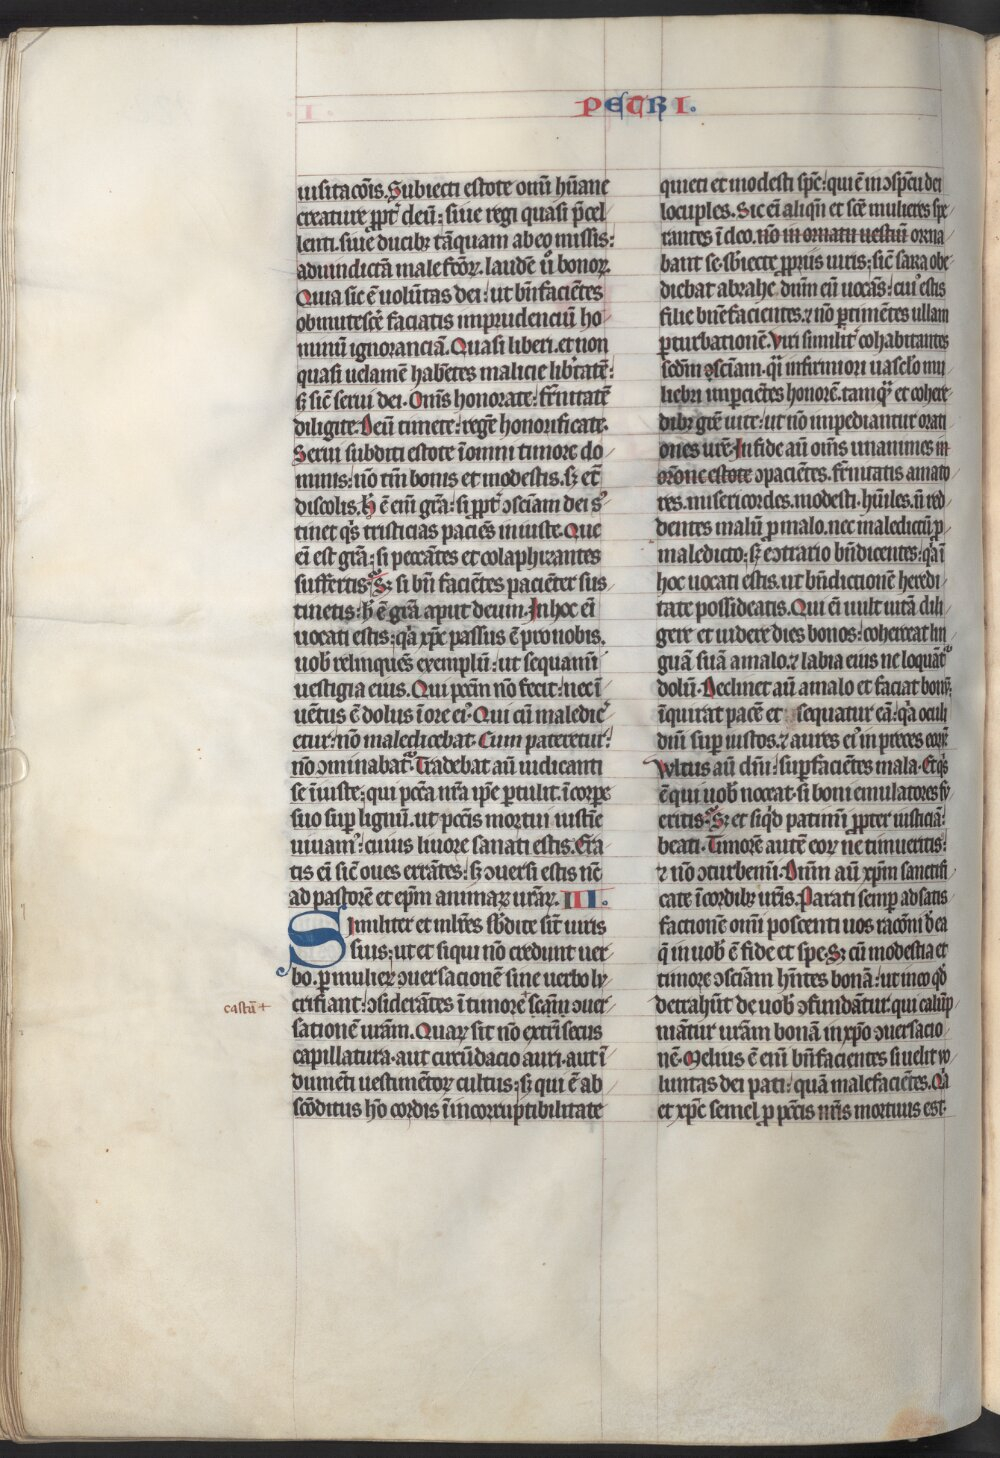 PETRI I.
uisitacōis. Subiecti estote om̄i hūane
creature ꝓpt̕ deū: siue regi quasi p̄cel
lenti. siue ducibꝫ tāquam ab eo missis:
ad uindictā malefc̄oꝝ. laudē ů bonoꝝ.
Quia sic ē uolūtas dei: ut bn̄faciētes
obmutescē faciatis imprudenciū ho
minū ignoranciā. Quasi liberi. et non
quasi uelamē habētes malicie lib̕tatē:
sꝫ sic̄ serui dei. Om̄s honorate: fr̄nitatē
diligite. Deū timete: regē honorificate.
Serui subditi estote ī omni timore do
minis: nō tm̄ bonis et modestis. sꝫ et̄
discolis. h̄ ē eni̅ gr̄a: si ꝓpt̕ ↄsciam dei s̕
tinet q̕s tristicias paciēs iniuste. Que
ei̅ est gr̄a: si peccātes et colaphizantes
suffertis. Sꝫ si bn̄ faciētes paciēter sus
tinetis: h̄ ē gr̄a aput deum. In hoc ei̅
uocati estis: q̕a xp̄c passus ē pro uobis.
uob̕ relinquēs exemplū: ut sequamī
uestigia eius. Qui pccm̄ nō fecit: nec ī
uētus ē dolus ī ore ei̕. Qui cū maledic̕
etur: nō maledicebat. Cum pateretur:
nō ↄminabat̕. Tradebat aū iudicanti
se īiuste: qui pcc̄a nr̄a ip̄e ꝑtulit. ī corꝑe
suo sup̲ lignū. ut pccis mortui iusticīe
uiuam̕: cuius liuore sanati estis. Era
tis ei̅ sic̄ oues errātes: sꝫ ↄuersi estis nc̄
ad pastorē et ep̄m animaꝝ ur̄aꝝ. III.
Similiter et ml̄res sb̕dite sīt uiris
suis: ut et si qui nō credunt uer
bo. ꝑ mulieꝝ ↄuersacionē sine uerbo lu
crifiant: ↄsiderātes ī timore scām ↄuer
castū +
sationē ur̄am. Quaꝝ sit nō extrīsecus
capillatura. aut circūdacio auri. aut ī
dumēti uestimētoꝝ cultus: sꝫ qui ē ab
scōditus hō cordis ī incorruptibilitate
quieti et modesti sp̄c: qui ē in ↄspc̄u dei
locuples. Sic ei̅ aliqn̄ et sc̄e mulieres spe
rantes ī deo. nō in ornatu uestiū orna
bant se. sb̕iecte ꝓpriis uiris: sic̄ sara obe
diebat abrahe dn̄m eū uocās: cui̕ estis
filie bn̄efacientes. ⁊ nō ꝑtimētes ullam
ꝑturbationē. Viri similit̕ cohabitantes
scd̄m ↄsciam. q̕i infirmiori uasclo̕ mu
liebri imꝑcietēs honorē. tamq̕ et cohere
dibꝫ gr̄e uite: ut nō impediantur orati
ones ur̄e. In fide aū om̄s unanimes in
or̄one estote ↄpaciētes. fr̄nitatis amato
res. misericordes. modesti. hūiles. n̄ red
dentes malū pro malo. nec maledictū ꝓ
maledicto: sꝫ eↄtrario bn̄dicentes: q̕a ī
hoc uocati estis. ut bn̄dictionē heredi
tate possideatis. Qui ei̅ uult uitā dili
gere et uidere dies bonos: coherceat lin
guā suā a malo. ⁊ labia eius ne loquāt̕
dolū. Declinet aū a malo et faciat bonū:
īquirat pacē et sequatur eā: q̕a oculi
dn̄i sup̲ iustos. ⁊ aures ei̕ in preces eoꝝ
Wltus aū dn̄i: sup̲ faciētes mala. Et q̕s
ē qui uob̕ noceat. si boni emulatores fu
eritis. Sꝫ et siq̕d patimī ꝓpter iusticiā:
beati. Timorē autē eoꝝ ne timueritis:
⁊ nō ↄturbemī. Dn̄m aū xp̄m sanctifi
cate ī cordibꝫ ur̄is. Parati semꝑ ad satis
factionē om̄i poscenti uos racōni h̄ ea
q̄ in uob̕ ē fide et spe. Sꝫ cū modestia et
timore ↄsciam hn̄tes bonā: ut in eo qd̕
detrahūt de uob̕ ↄfundātur. qui calūp
niātur ur̄am bonā in xp̄o ↄuersacio
nē. Melius ē eni̅ bn̄facientes si uelit uo
luntas dei pati: quā malefaciētes. Q̕a
et xp̄c semel ꝓ pccis nr̄is mortuus est.